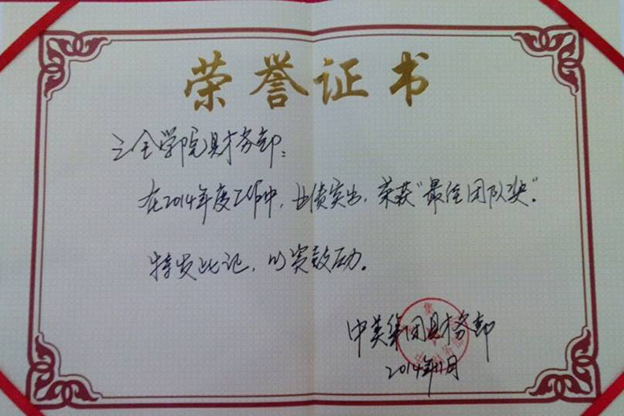 荣誉证书
三全学院财务部:
在2014年度工作中,业绩突出,荣获“最佳团队奖”。
特发此证,以资鼓励。
中美集团财务部
2014年12月